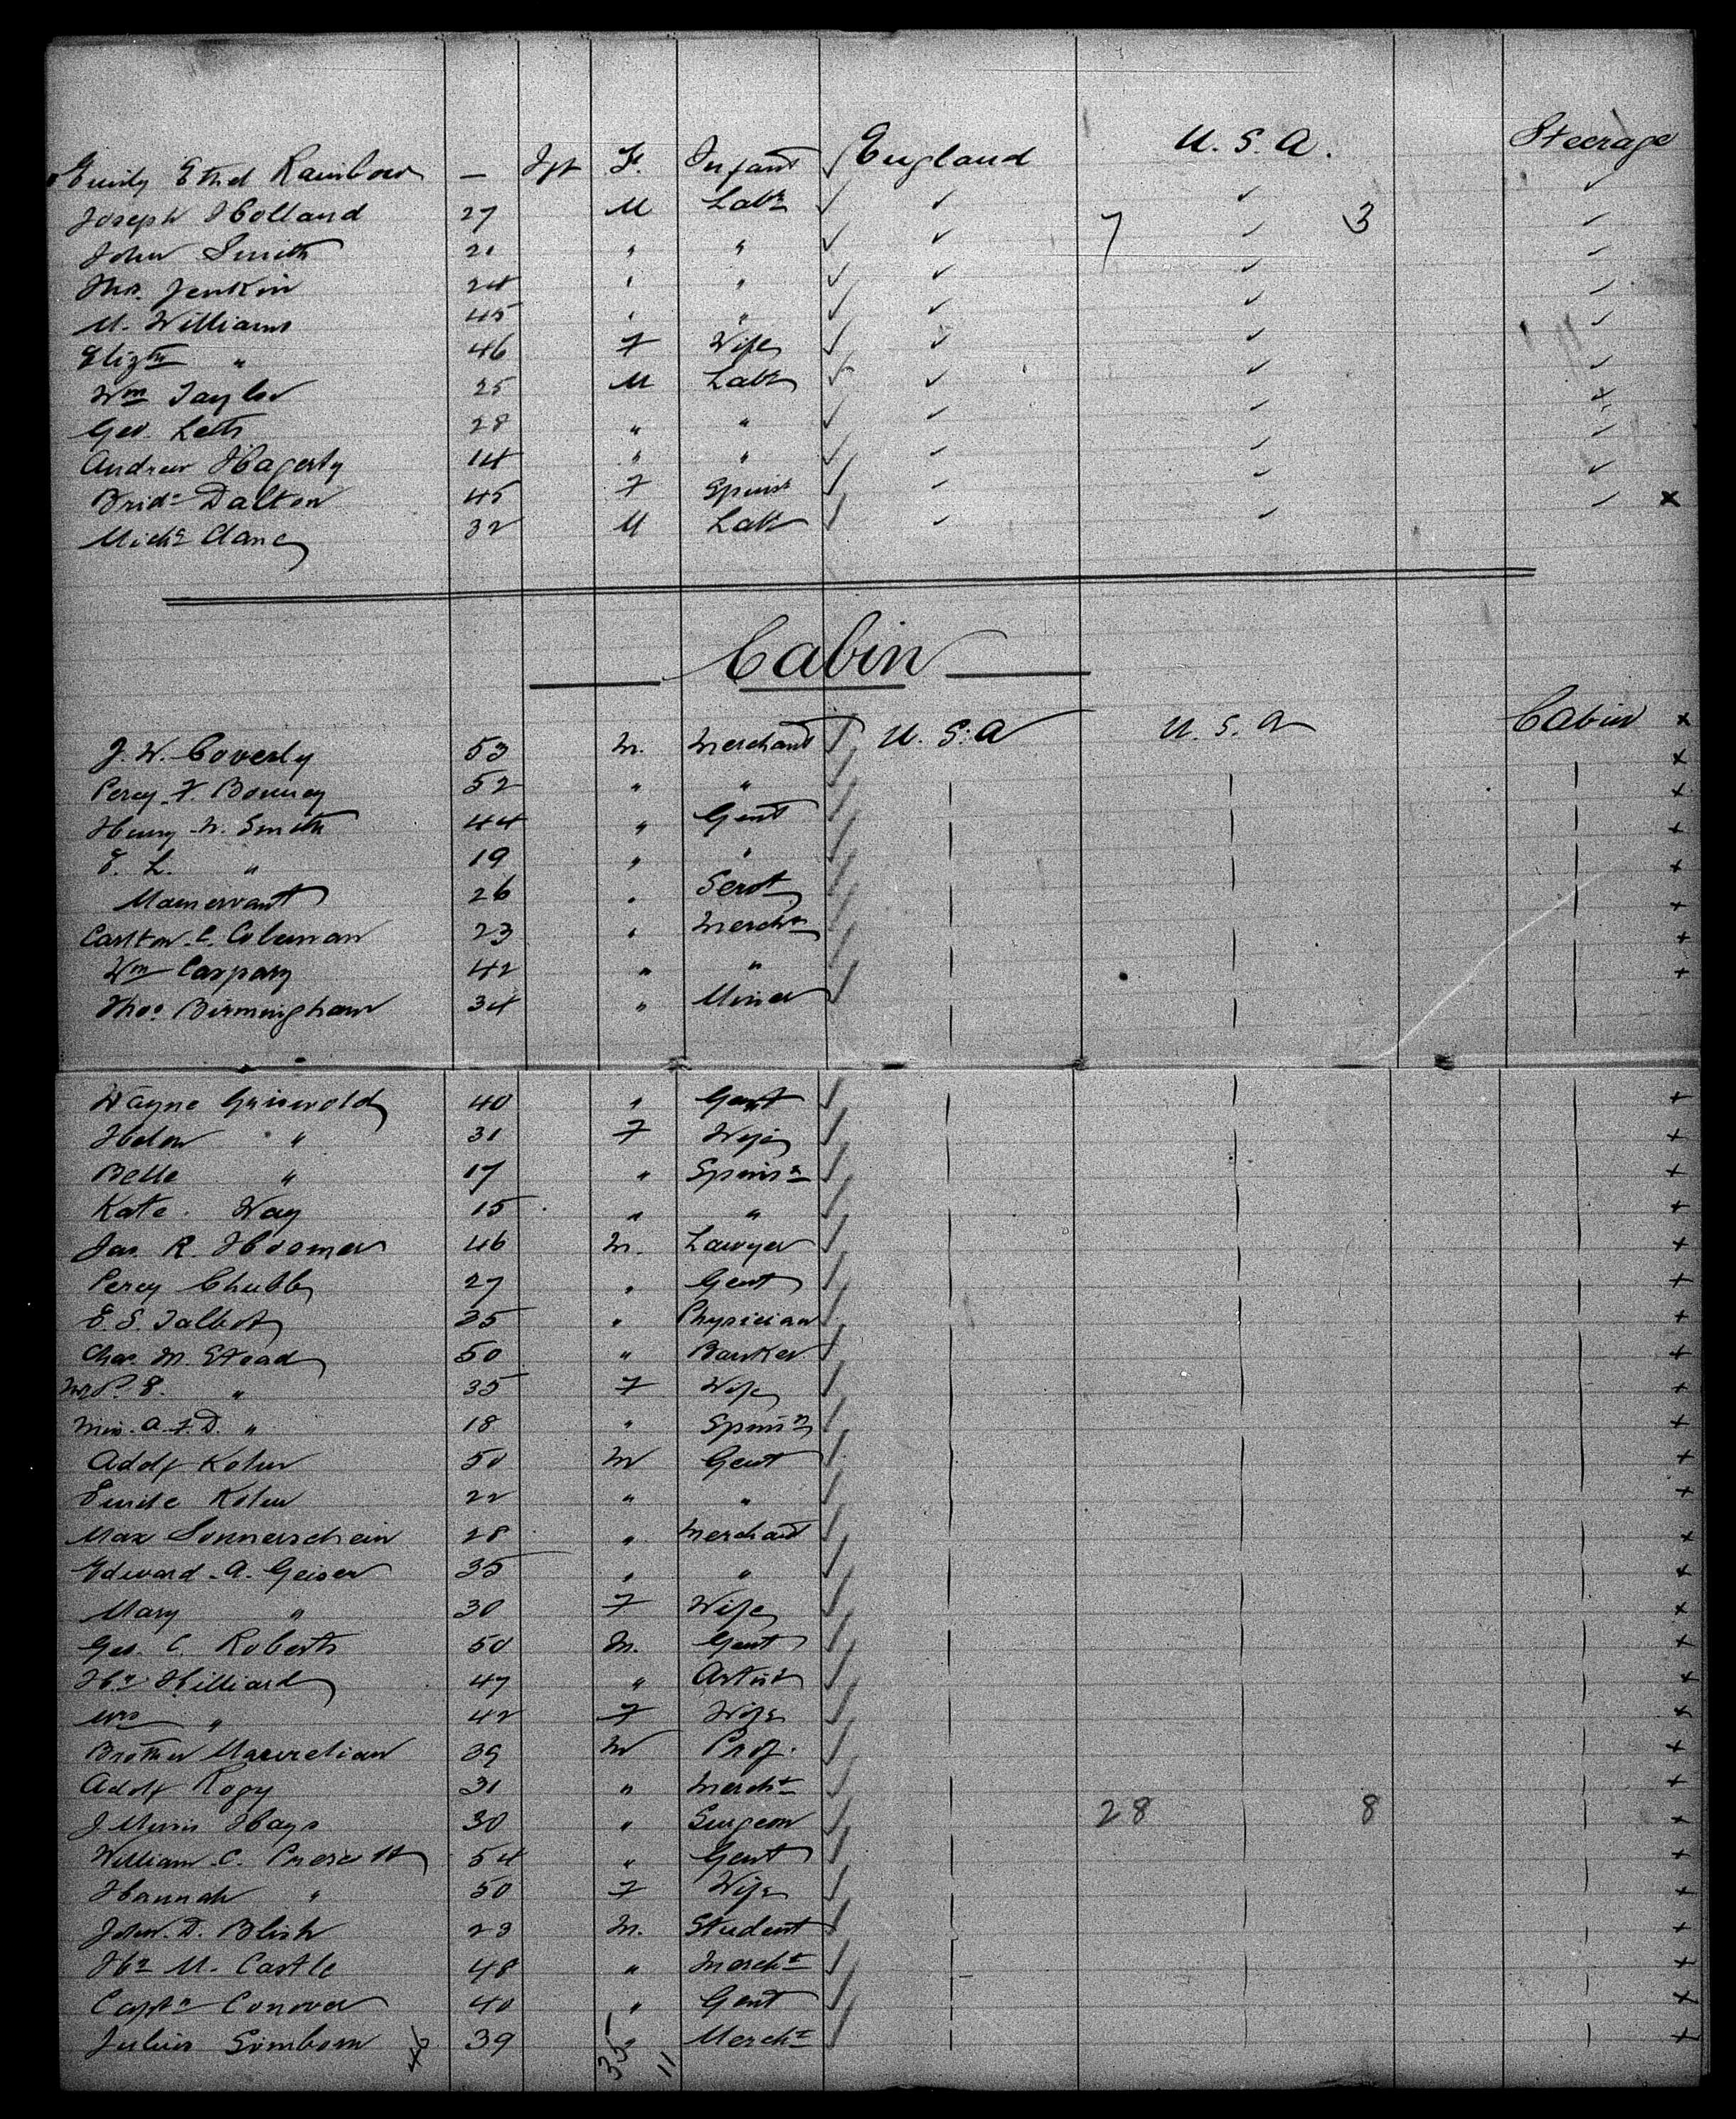 Emily Ethel Rainbow — Inft F. Infant ✓ England U. S. A. Steerage
Joseph Holland 27 M Labr ✓ ✓ ✓ ✓
7 3
John Smith 21 " " ✓ ✓ ✓ ✓
Thos. Jenkin 24 " " ✓ ✓ ✓ ✓
M. Williams 45 " " ✓ ✓ ✓ ✓
Elizth " 46 F Wife ✓ ✓ ✓ ✓
Wm Taylor 25 M Labr ✓ ✓ ✓ ✓
Geo. Letts 28 " " ✓ ✓ x
Andrew Hagerty 14 " " ✓ ✓ ✓ ✓
Bridt Dalton 45 F Spinst ✓ ✓ ✓ ✓
Michl Clancy 32 M Labr ✓ ✓ ✓ ✓ x
Cabin
J. W. Coverly 53 M. Merchant ✓ U. S. A U. S. A Cabin x
Percy F. Bonney 52 " " ✓ x
Henry W. Smith 44 " Gent ✓ x
E. L. " 19 " " ✓ x
Manservant 26 " Servt ✓ x
Carlton C. Coleman 23 " Mercht ✓ x
Wm Caspary 42 " " ✓ x
Thos Birmingham 34 " Miner ✓ x
Wayne Griswold 40 " Gent ✓ x
Helen " 31 F Wife ✓ x
Belle " 17 " Spinsr ✓ x
Kate Way 15 " " ✓ x
Jas. R. Hosmer 46 M. Lawyer ✓ x
Percy Chubb 27 " Gent ✓ x
E. S. Talbot 35 " Physician ✓ x
Chas. M. Stead 50 " Banker ✓ x
Mrs. E. " 35 F Wife ✓ x
Miss A. F. D. " 18 " Spinsr ✓ x
Adolf Kohn 50 M Gent ✓ x
Emile Kohn 22 " " ✓ x
Max Sonnerschein 28 " Merchant ✓ x
Edward A. Geiser 35 " " ✓ x
Mary " 30 F Wife ✓ x
Geo. C. Roberts 50 M. Gent ✓ x
Hy Hilliard 47 " Artist ✓ x
Mrs " 42 F Wife ✓ x
Brother 39 M Prof. ✓ x
Adolf Rogy 31 " Mercht ✓ x
J Hays 30 " Surgeon ✓ 28 8 x
William C. Prescott 54 " Gent ✓ x
Hannah " 50 F Wife ✓ x
John. D. Blish 23 M. Student ✓ x
Hy M. Castle 48 " Mercht ✓ x
Captn Conover 40 " Gent ✓ x
Julius 39 " Mercht ✓ x
46 35 11